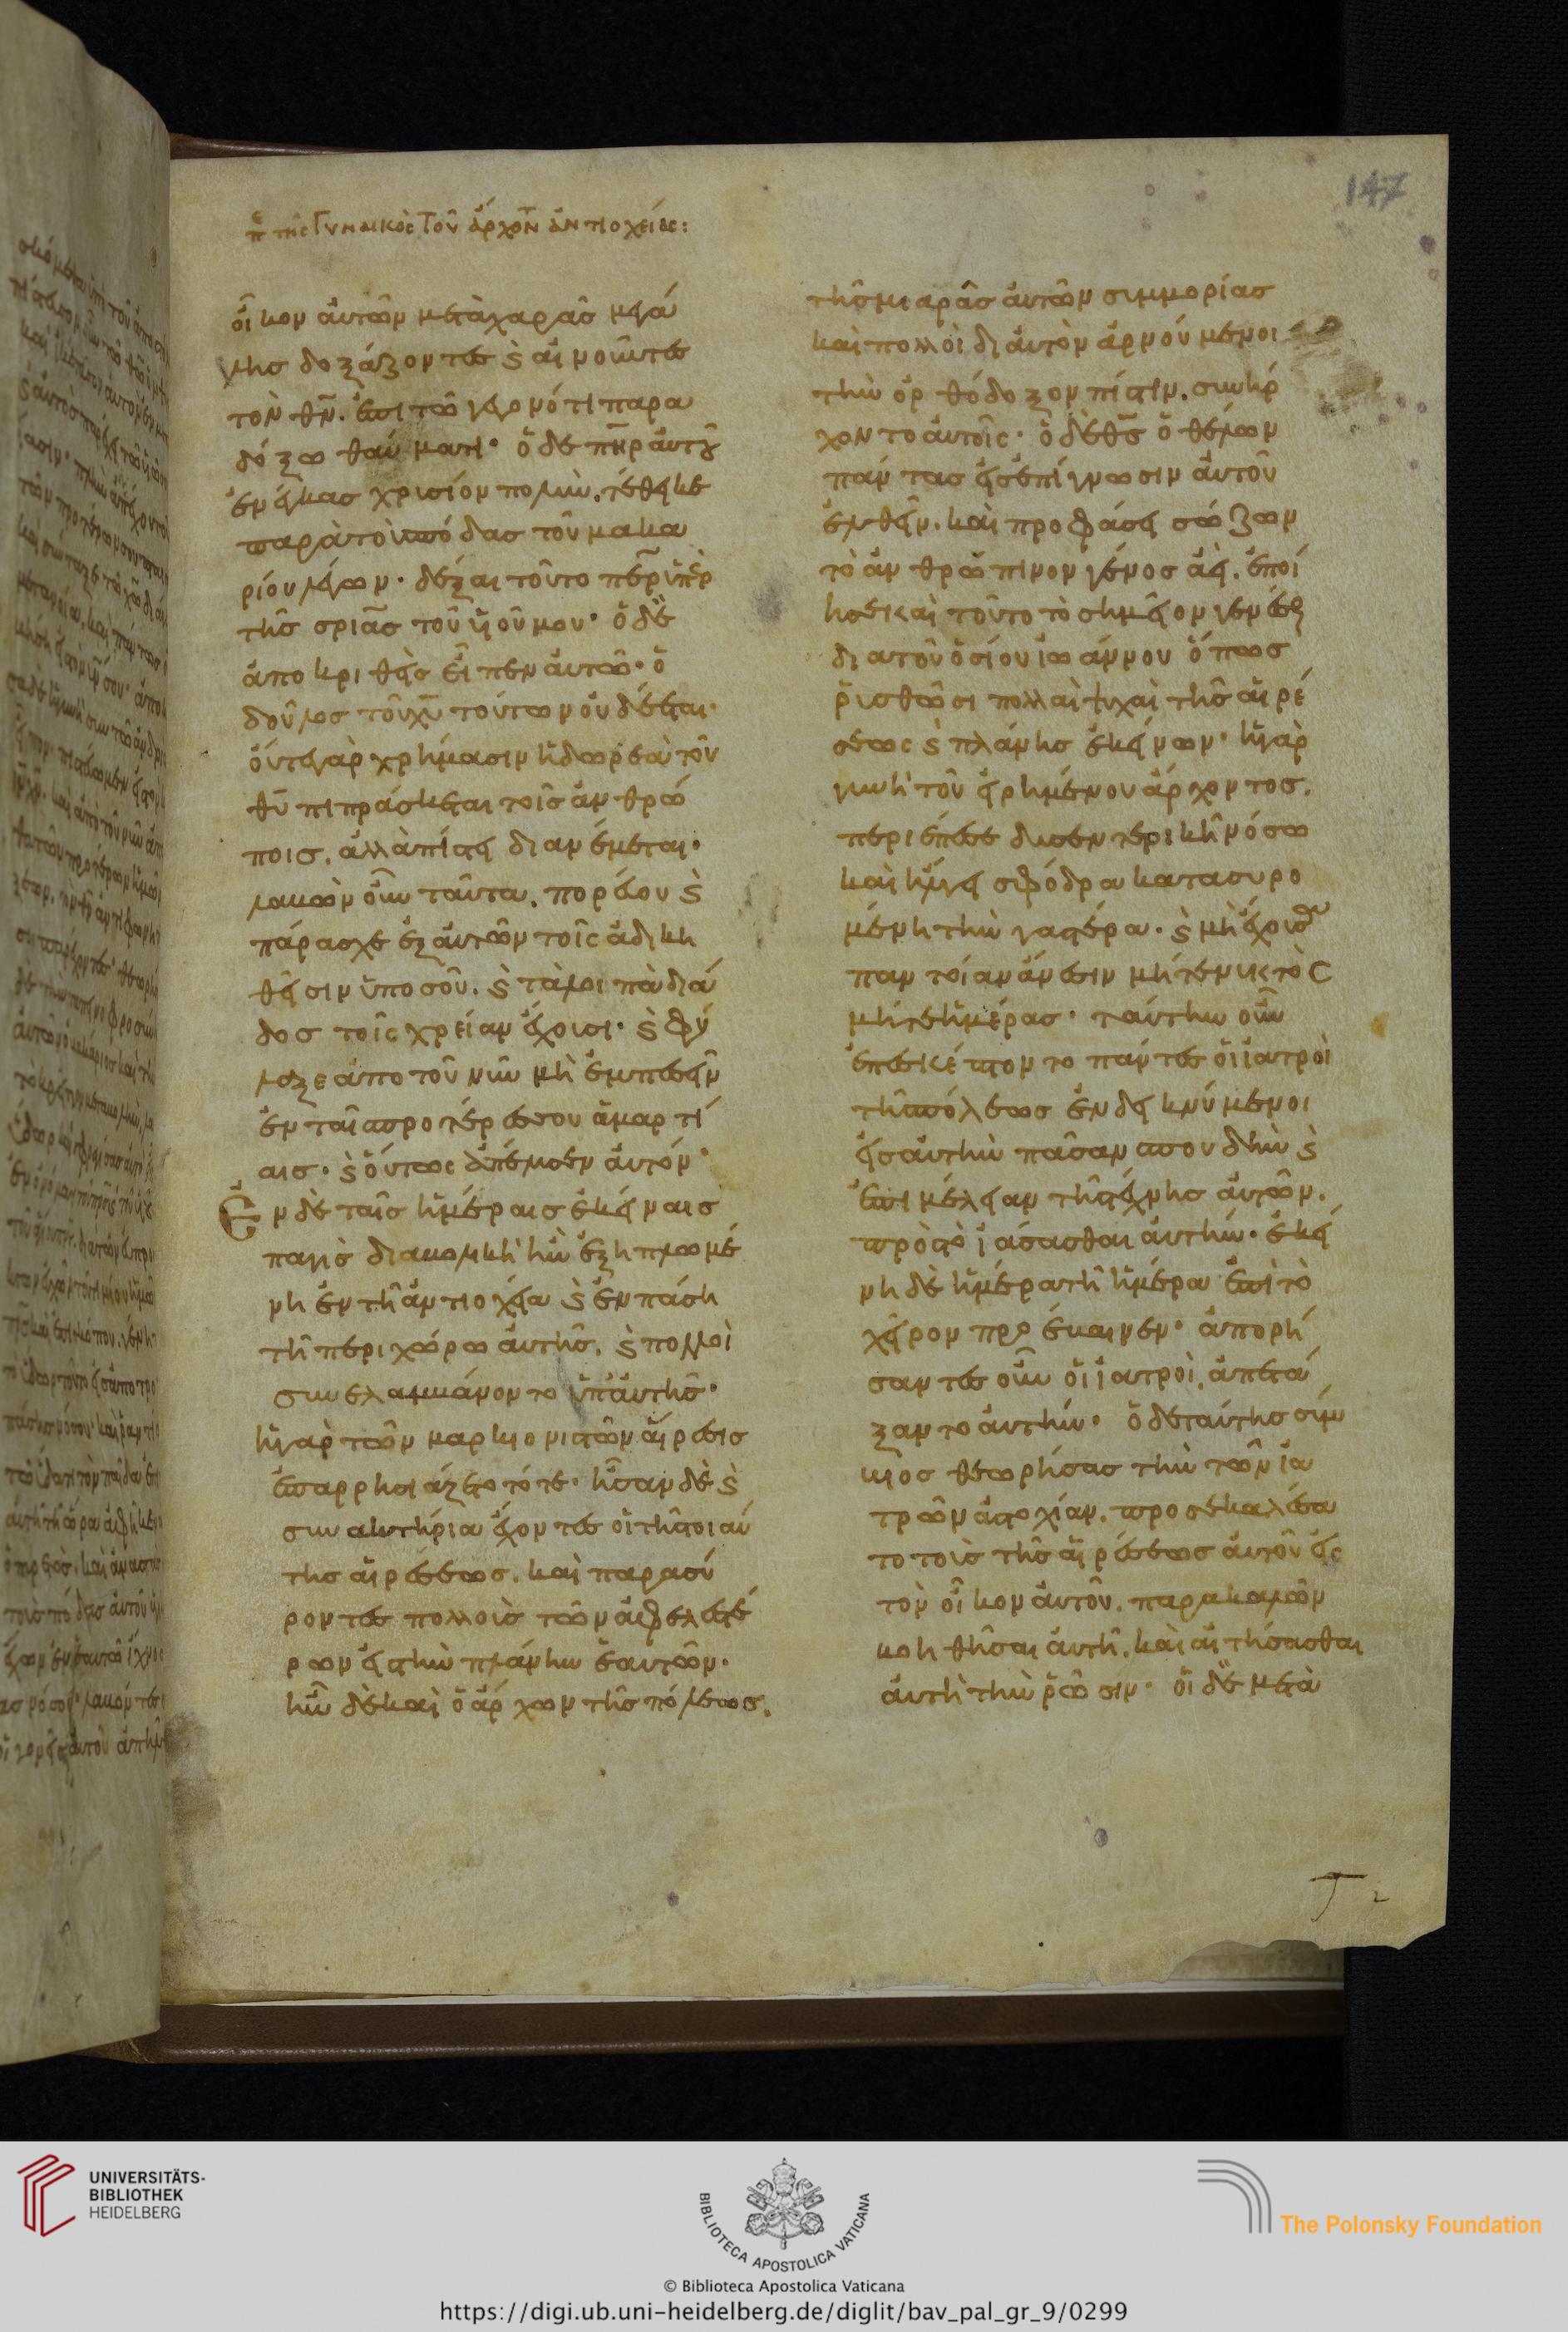 147
π̅ε τῆς Γυναικὸς Τοῦ ἄρχοντ ἀντιοχείας:
οἶκον αὐτῶν μετὰ χαρᾶς μεγά
λης δοξάζοντες ϗ αἰνοῦντες
τὸν θν̅. ἐπὶ τῶ γεγονότι παρα
δόξω θαύματι· ὁ δὲ πη̅ρ αὐτοῦ
ἐνέγκας χρυσίον πολὺν, τέθεικε
παρὰ τοὺς πόδας τοῦ μακα
ρίου λέγων· δέξαι τοῦτο πε̅ρ ὑπὲρ
τῆς σρι̅ας τοῦ ὑιοῦ μου· ὁ δὲ
ἀποκριθεὶς εἶπεν αὐτῶ· ὁ
δοῦλος τοῦ χυ̅ τούτων οὐ δέεται·
οὔτε γὰρ χρήμασιν ἡ δωρεὰ τοῦ
θυ̅ πιπράσκεται τοῖς ἀνθρώ
ποις, ἀλλὰ πίστει διανέμεται·
λαβὼν οὖν ταῦτα, πορεύου ϗ
πάρασχε ἐξ αὐτῶν τοῖς ἀδικη
θεῖσιν ὑπο σοῦ, ϗ τὰ λοιπὰ διά
δος τοῖς χρείαν ἔχουσι· ϗ φύ
λαξε ἀπο τοῦ νῦν μὴ ἐμπεσεῖν
ἐν ταῖ προτέρες σου ἁμαρτί
αις· ϗ οὕτως ἀπέλυσεν αὐτόν·
Ἐν δὲ ταῖς ἡμέραις ἐκείναις
παγὶς διαβολικὴ ἦν ἐξηπλωμέ
νη ἐν τῆ ἀντιοχεία ϗ ἐν πάση
τῆ περιχώρω αὐτῆς, ϗ πολλοὶ
συνελαμβάνοντο ὑπ' αὐτῆς·
ἡ γὰρ τῶν μαρκιονιστῶν αἵρεσις
ἐπαρρησιάζετο τότε· ἦσαν δὲ ϗ
συνακτήρια ἔχοντες οἱ τῆς τοιαύ
της αἱρέσεως, καὶ παρασύ
ροντες πολλοὺς τῶν ἀφελεστέ
ρων εἰς τὴν πλάνην ἑαυτῶν·
ἦν δὲ καὶ ὁ ἄρχων τῆς πόλεως,
τῆς μιαρᾶς αὐτῶν συμμορίας
καὶ πολλοὶ δι αὐτὸν ἀρνούμενοι
τὴν ὀρθόδοξον πίστιν, συνήρ
χοντο αὐτοῖς· ὁ δὲ θς̅ ὁ θέλων
πάντας εἰς ἐπίγνωσιν αὐτοῦ
ἐλθεῖν, καὶ προφάσει σώζων
τὸ ἀνθρώπινον γένος ἀεὶ, ἐποί
ησε καὶ τοῦτο τὸ σημεῖον γενέσθαι
δι α τοῦ ὁσίου ἰωάννου ὅπως
ῥυσθῶσι πολλαὶ ψυχαὶ τῆς αἱρέ
σεως ϗ πλάνης ἐκείνων· ἡ γὰρ
γυνὴ τοῦ εἰρημένου ἄρχοντος,
περιέπεσε δυσεντερικῆ νόσω
καὶ ἤλγει σφόδρα κατασυρο
μένη τὴν γαστέρα· ϗ μὴ ἔχουσα
παντοίαν ἄνεσιν μήτε νυκτὸς
μήτε ἡμέρας· ταύτην οὖν
ἐπεσκέπτοντο πάντες οἱ ἰατροὶ
τῆς πόλεως ἐνδεικνύμενοι
εἰς αὐτὴν πᾶσαν σπουδὴν ϗ
ἐπιμέλειαν τῆς τέχνης αὐτῶν,
πρὸς τὸ ἰάσασθαι αὐτήν· ἐκεί
νη δὲ ἡμέρα τῆ ἡμέρα ἐπὶ τὸ
χεῖρον προέβαινεν· ἀπορή
σαντες οὖν οἱ ἰατροὶ, ἀπετά
ξαντο αὐτήν· ὁ δὲ ταύτης σύμ
βιος θεωρήσας τὴν τῶν ἰα
τρῶν ἀστοχίαν, προσεκαλέσα
το τοὺς τῆς αἱρέσεως αὐτοῦ εἰς
τὸν οἶκον αὐτοῦ, παρακαλῶν
βοηθῆσαι αὐτῆ, καὶ αἰτήσασθαι
αὐτῆ τὴν ῥῶσιν· οἱ δὲ μετὰ
UNIVERSITÄTS-
BIBLIOTHEK
HEIDELBERG
BIBLIOTECA APOSTOLICA VATICANA
The Polonsky Foundation
© Biblioteca Apostolica Vaticana
https://digi.ub.uni-heidelberg.de/diglit/bav_pal_gr_9/0299